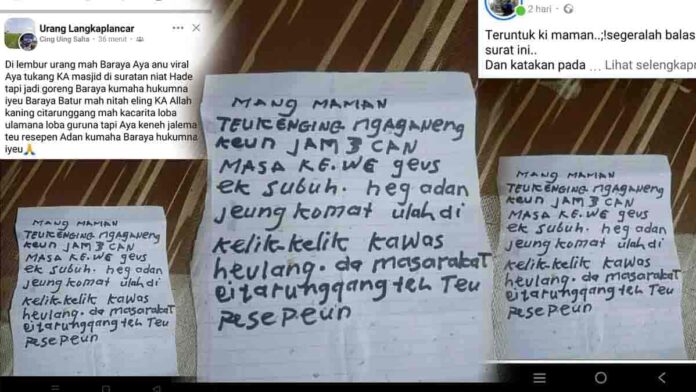 Urang Langkaplancar
Cing Uing Salta · 36 menit ·
Di lembur urang mah Baraya Aya anu viral
Aya tukang KA masjid di suratan niat Hade
tapi jadi goreng Baraya kumaha hukumna
iyeu Baraya Batur mah nitah eling KA Allah
kaning citarunggang mah kacarita loba
ulamana loba guruna tapi Aya keneh jalema
teu resepen Adan kumaha Baraya hukumna
iyeu🙏
MANG MAMAN
TEUKENGING NGAGANENG
KEUN JAM 3 CAN
MASA KE.WE geus
ek subuh. heg adan
jeung komat ulah di
kelik-kelik kawas
heulang. da masarakat
citarunggang teh Teu
resepeun
MANG MAMAN
TEUKENGING NGAGANENG
KEUN JAM 3 CAN
MASA KE.WE geus
ek subuh. heg adan
jeung komat ulah di
kelik-kelik kawas
heulang. da masarakaT
citarunggang teh Teu
resepeun
2 hari ·
Teruntuk ki maman..;!segeralah balas
surat ini..
Dan katakan pada ... Lihat selengkap
MANG MAMAN
TEUKENGING NGAGANENG
KEUN JAM 3 CAN
MASA KE.WE geus
ek subuh. heg adan
jeung komat ulah di
kelik-kelik kawas
heulang. da masarakat
citarunggang teh Teu
resepeun